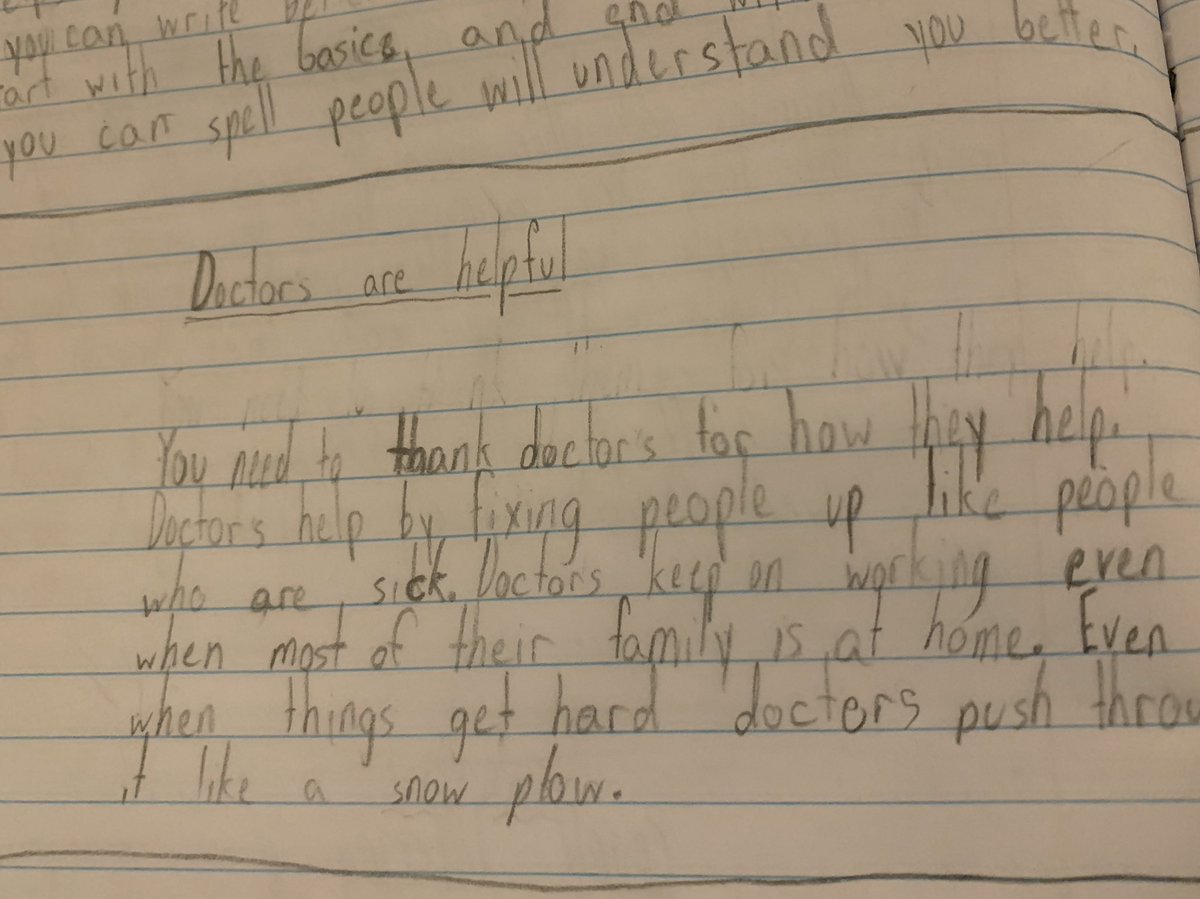 you can write
art with the basics, and end
you can spell people will understand you better.
Doctors are helpful
how they help.
You need to thank doctors for how they help.
Doctors help by fixing people up like people
who are sick. Doctors keep on working even
when most of their family is at home. Even
when things get hard docters push throu
it like a snow plow.